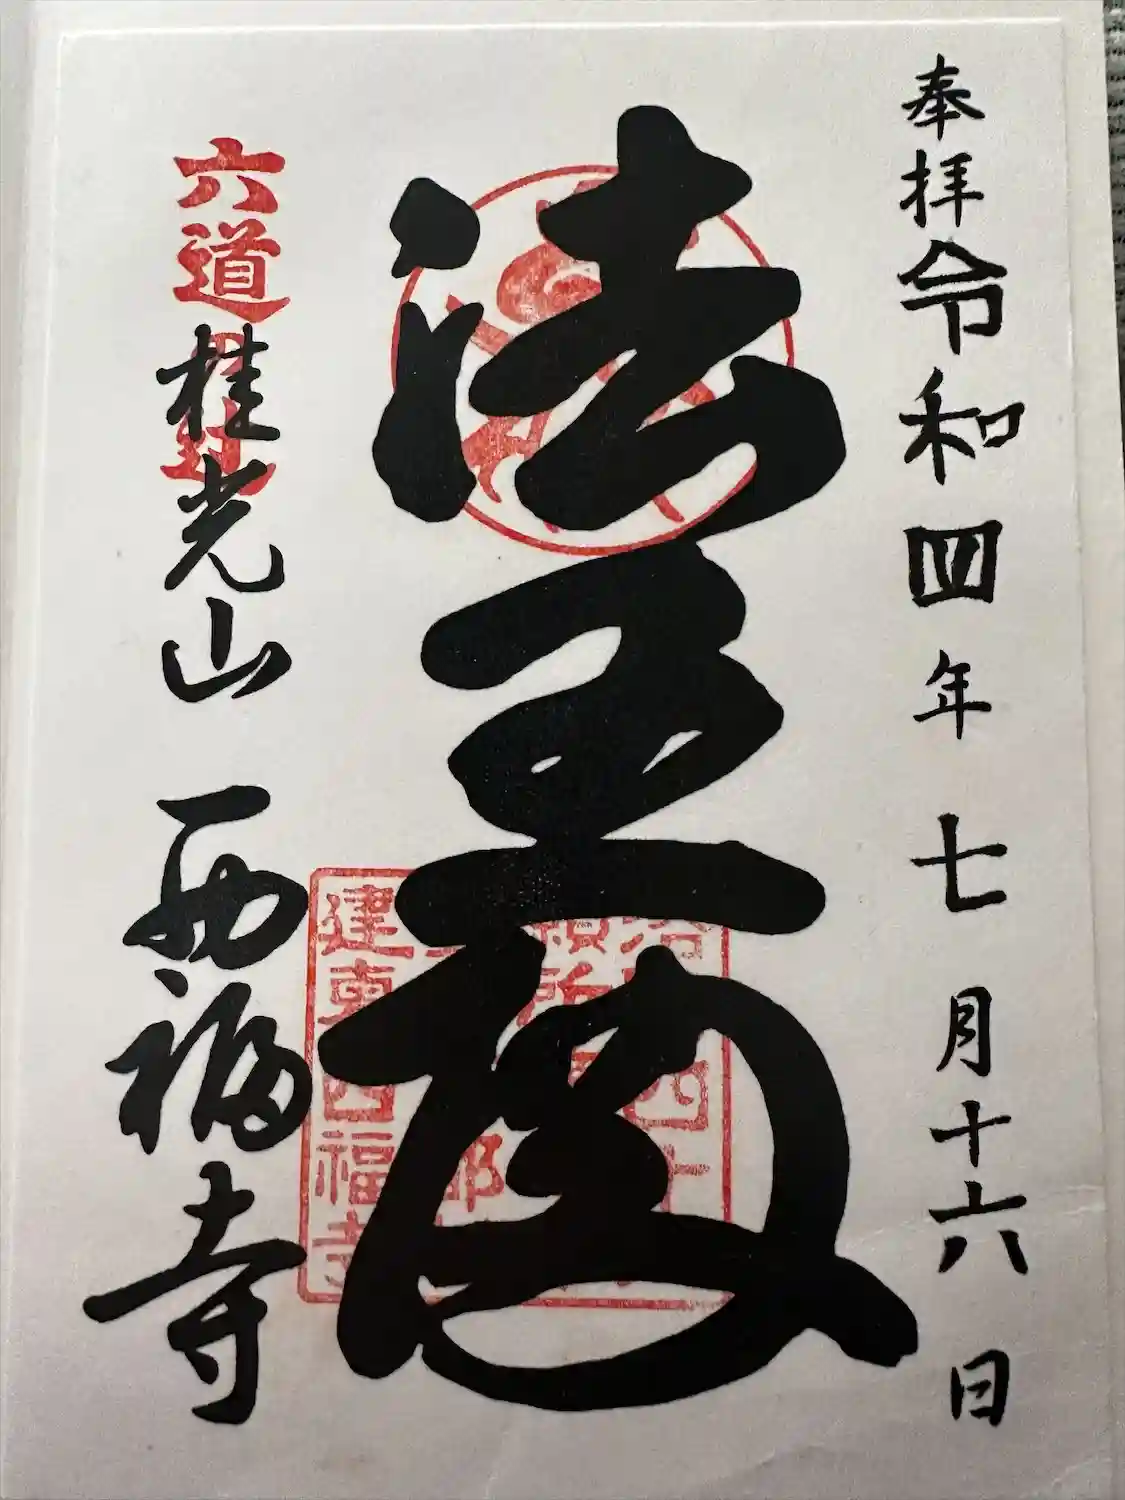 奉拝 令和四年七月十六日
法王
六道
桂光山 西福寺
建東西福寺